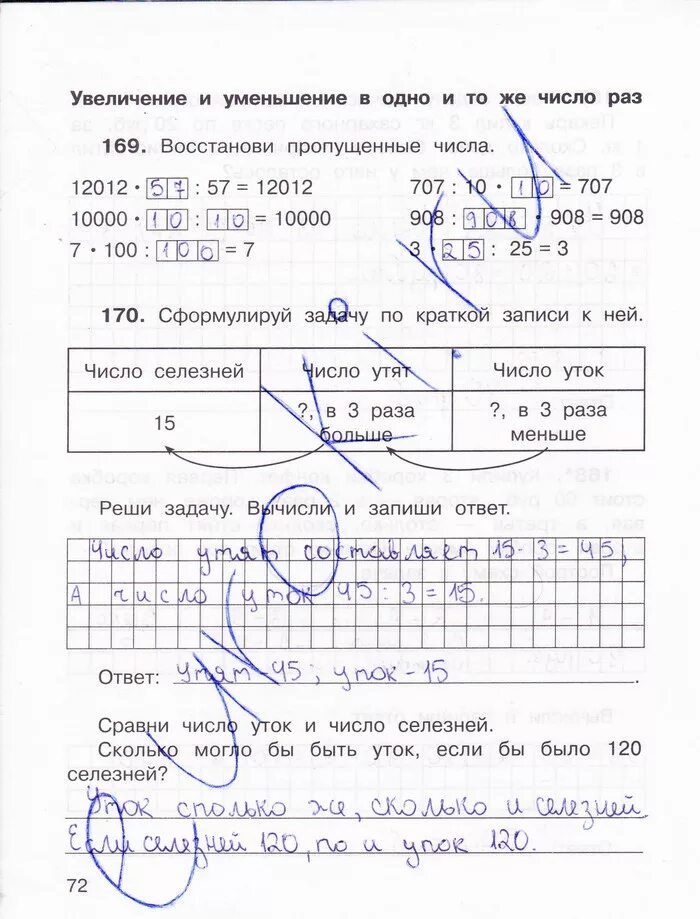 Увеличение и уменьшение в одно и то же число раз
169. Восстанови пропущенные числа.
12012 · 57 : 57 = 12012 707 : 10 · 10 = 707
10000 · 10 : 10 = 10000 908 : 908 · 908 = 908
7 · 100 : 100 = 7 3 · 25 : 25 = 3
170. Сформулируй задачу по краткой записи к ней.
Число селезней Число утят Число уток
15 ?, в 3 раза больше ?, в 3 раза меньше
Реши задачу. Вычисли и запиши ответ.
Число утят составляет 15·3=45,
А число уток 45:3=15.
Ответ: Утят-45, уток-15.
Сравни число уток и число селезней.
Сколько могло бы быть уток, если бы было 120
селезней?
Уток столько же, сколько и селезней.
Если селезней 120, то и уток 120.
72